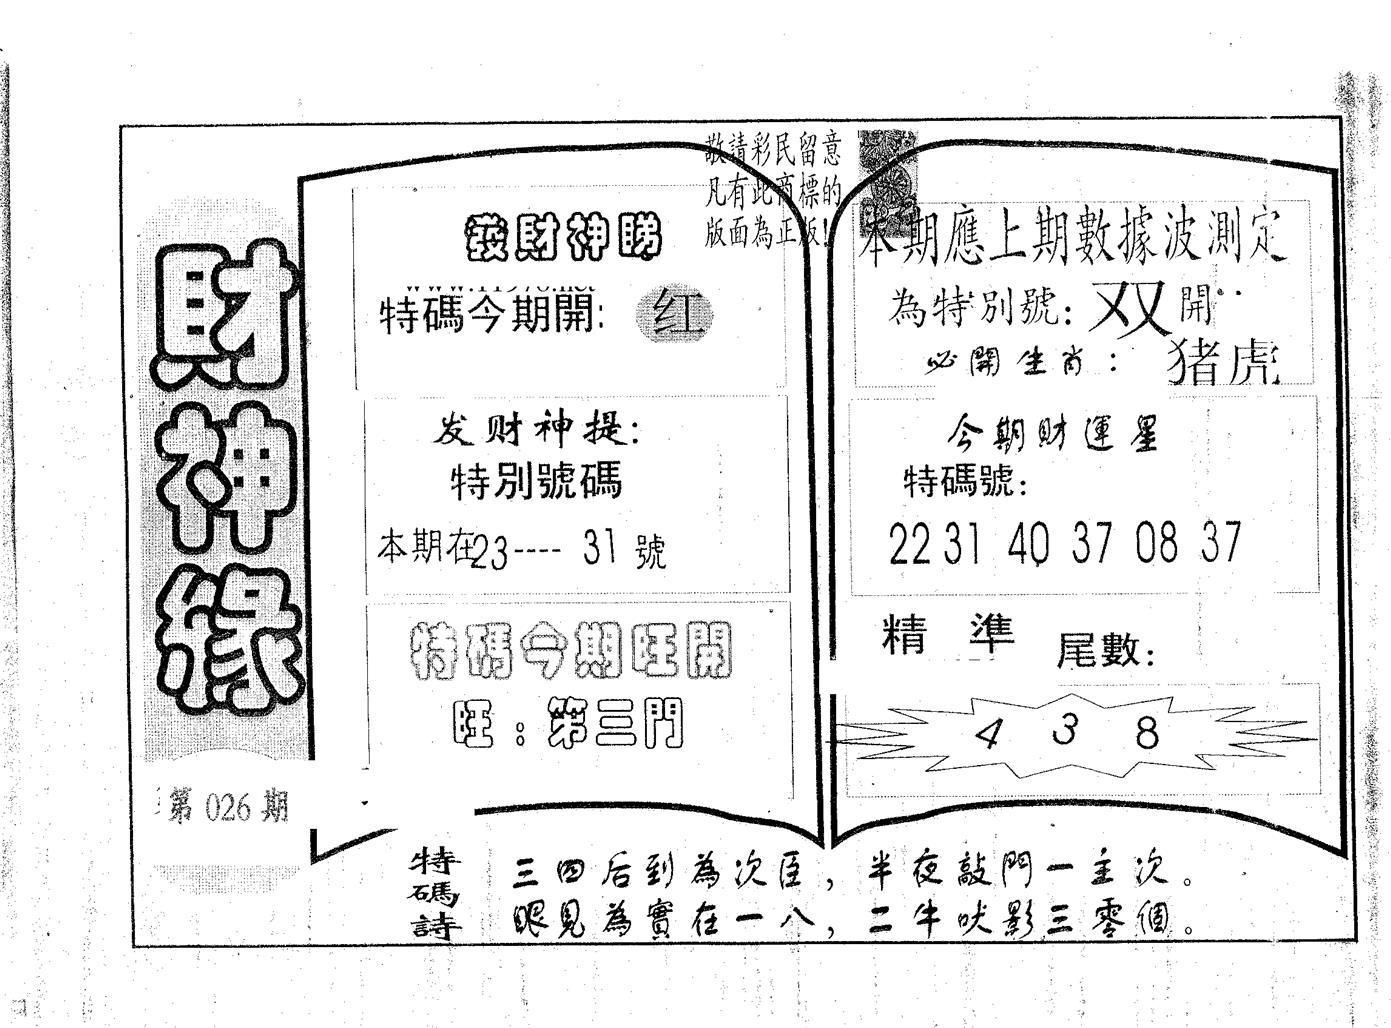 財神緣
第 026 期
敬請彩民留意
凡有此商標的
版面為正版!
發財神睇
www.11976.net
特碼今期開: 红
发财神提:
特別號碼
本期在23---- 31 號
特碼今期旺開
旺:第三門
本期應上期數據波測定
為特別號: 双 開
必開生肖: 猪虎
今期財運星
特碼號:
22 31 40 37 08 37
精 準 尾數:
4 3 8
特碼詩
三四后到為次臣,半夜敲門一主次。
眼見為實在一八,二牛吠影三零個。